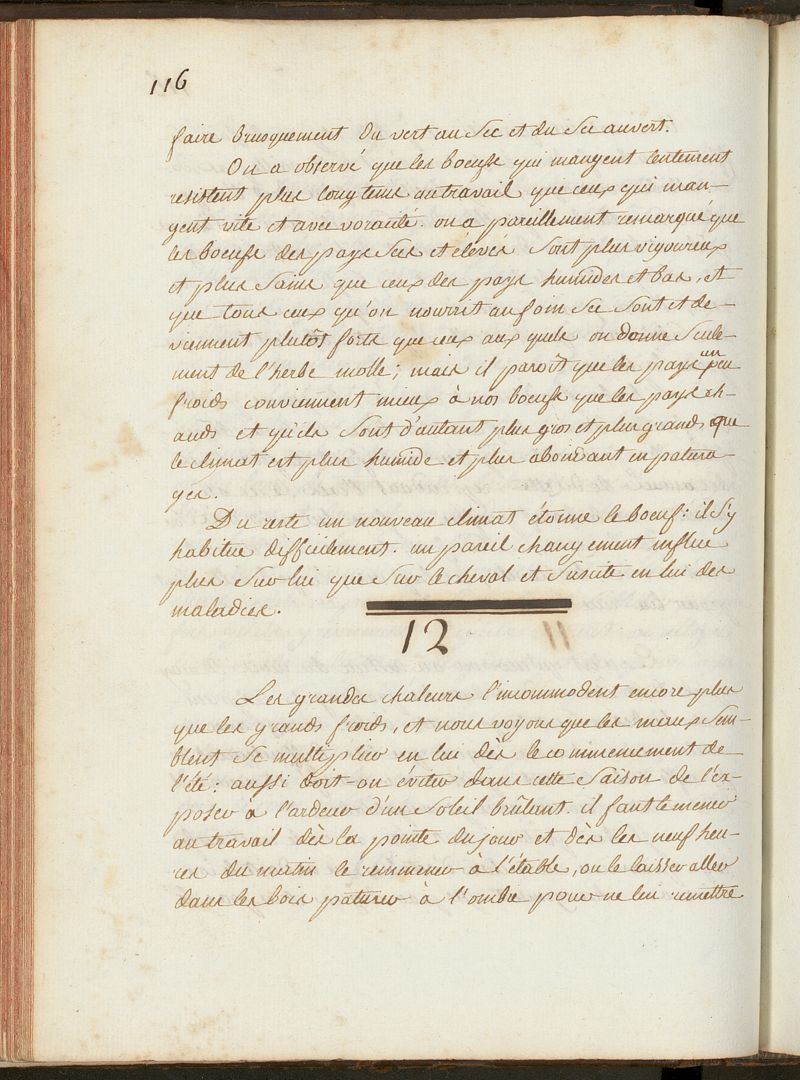 116
faire brusquement du vert au sec et du sec au vert.
On a observé que les boeufs qui mangent lentement
resistent plus long tems au travail que ceux qui man-
gent vite et avec voracité. on a pareillement remarqué que
les boeufs des pays secs et élevés sont plus vigoureux
et plus sains que ceux des pays humides et bas, et
que tous ceux qu'on nourrit au foin sec sont et de-
viennent plutôt forts que ceux aux quels on donne seule-
ment de l'herbe molle; mais il paroît que les pays un peu
froids conviennent mieux à nos boeufs que les pays ch-
auds et qu'ils sont d'autant plus gros et plus grands que
le climat est plus humide et plus abondant en patura-
ges.
Du reste un nouveau climat étonne le boeuf: il s'y
habitue difficilement. un pareil changement influe
plus sur lui que sur le cheval et suscite en lui des
maladies.
12 11
Les grandes chaleurs l'incommodent encore plus
que les grands froids, et nous voyons que les maux sem-
blent se multiplier en lui dès le commencement de
l'été: aussi doit-on éviter dans cette saison de l'ex-
poser à l'ardeur d'un soleil brûlant. il faut le mener
au travail dès la pointe du jour et dès les neuf heu-
res du matin le remmener à l'étable, ou le laisser aller
dans les bois paturer à l'ombre pour ne leu remettre